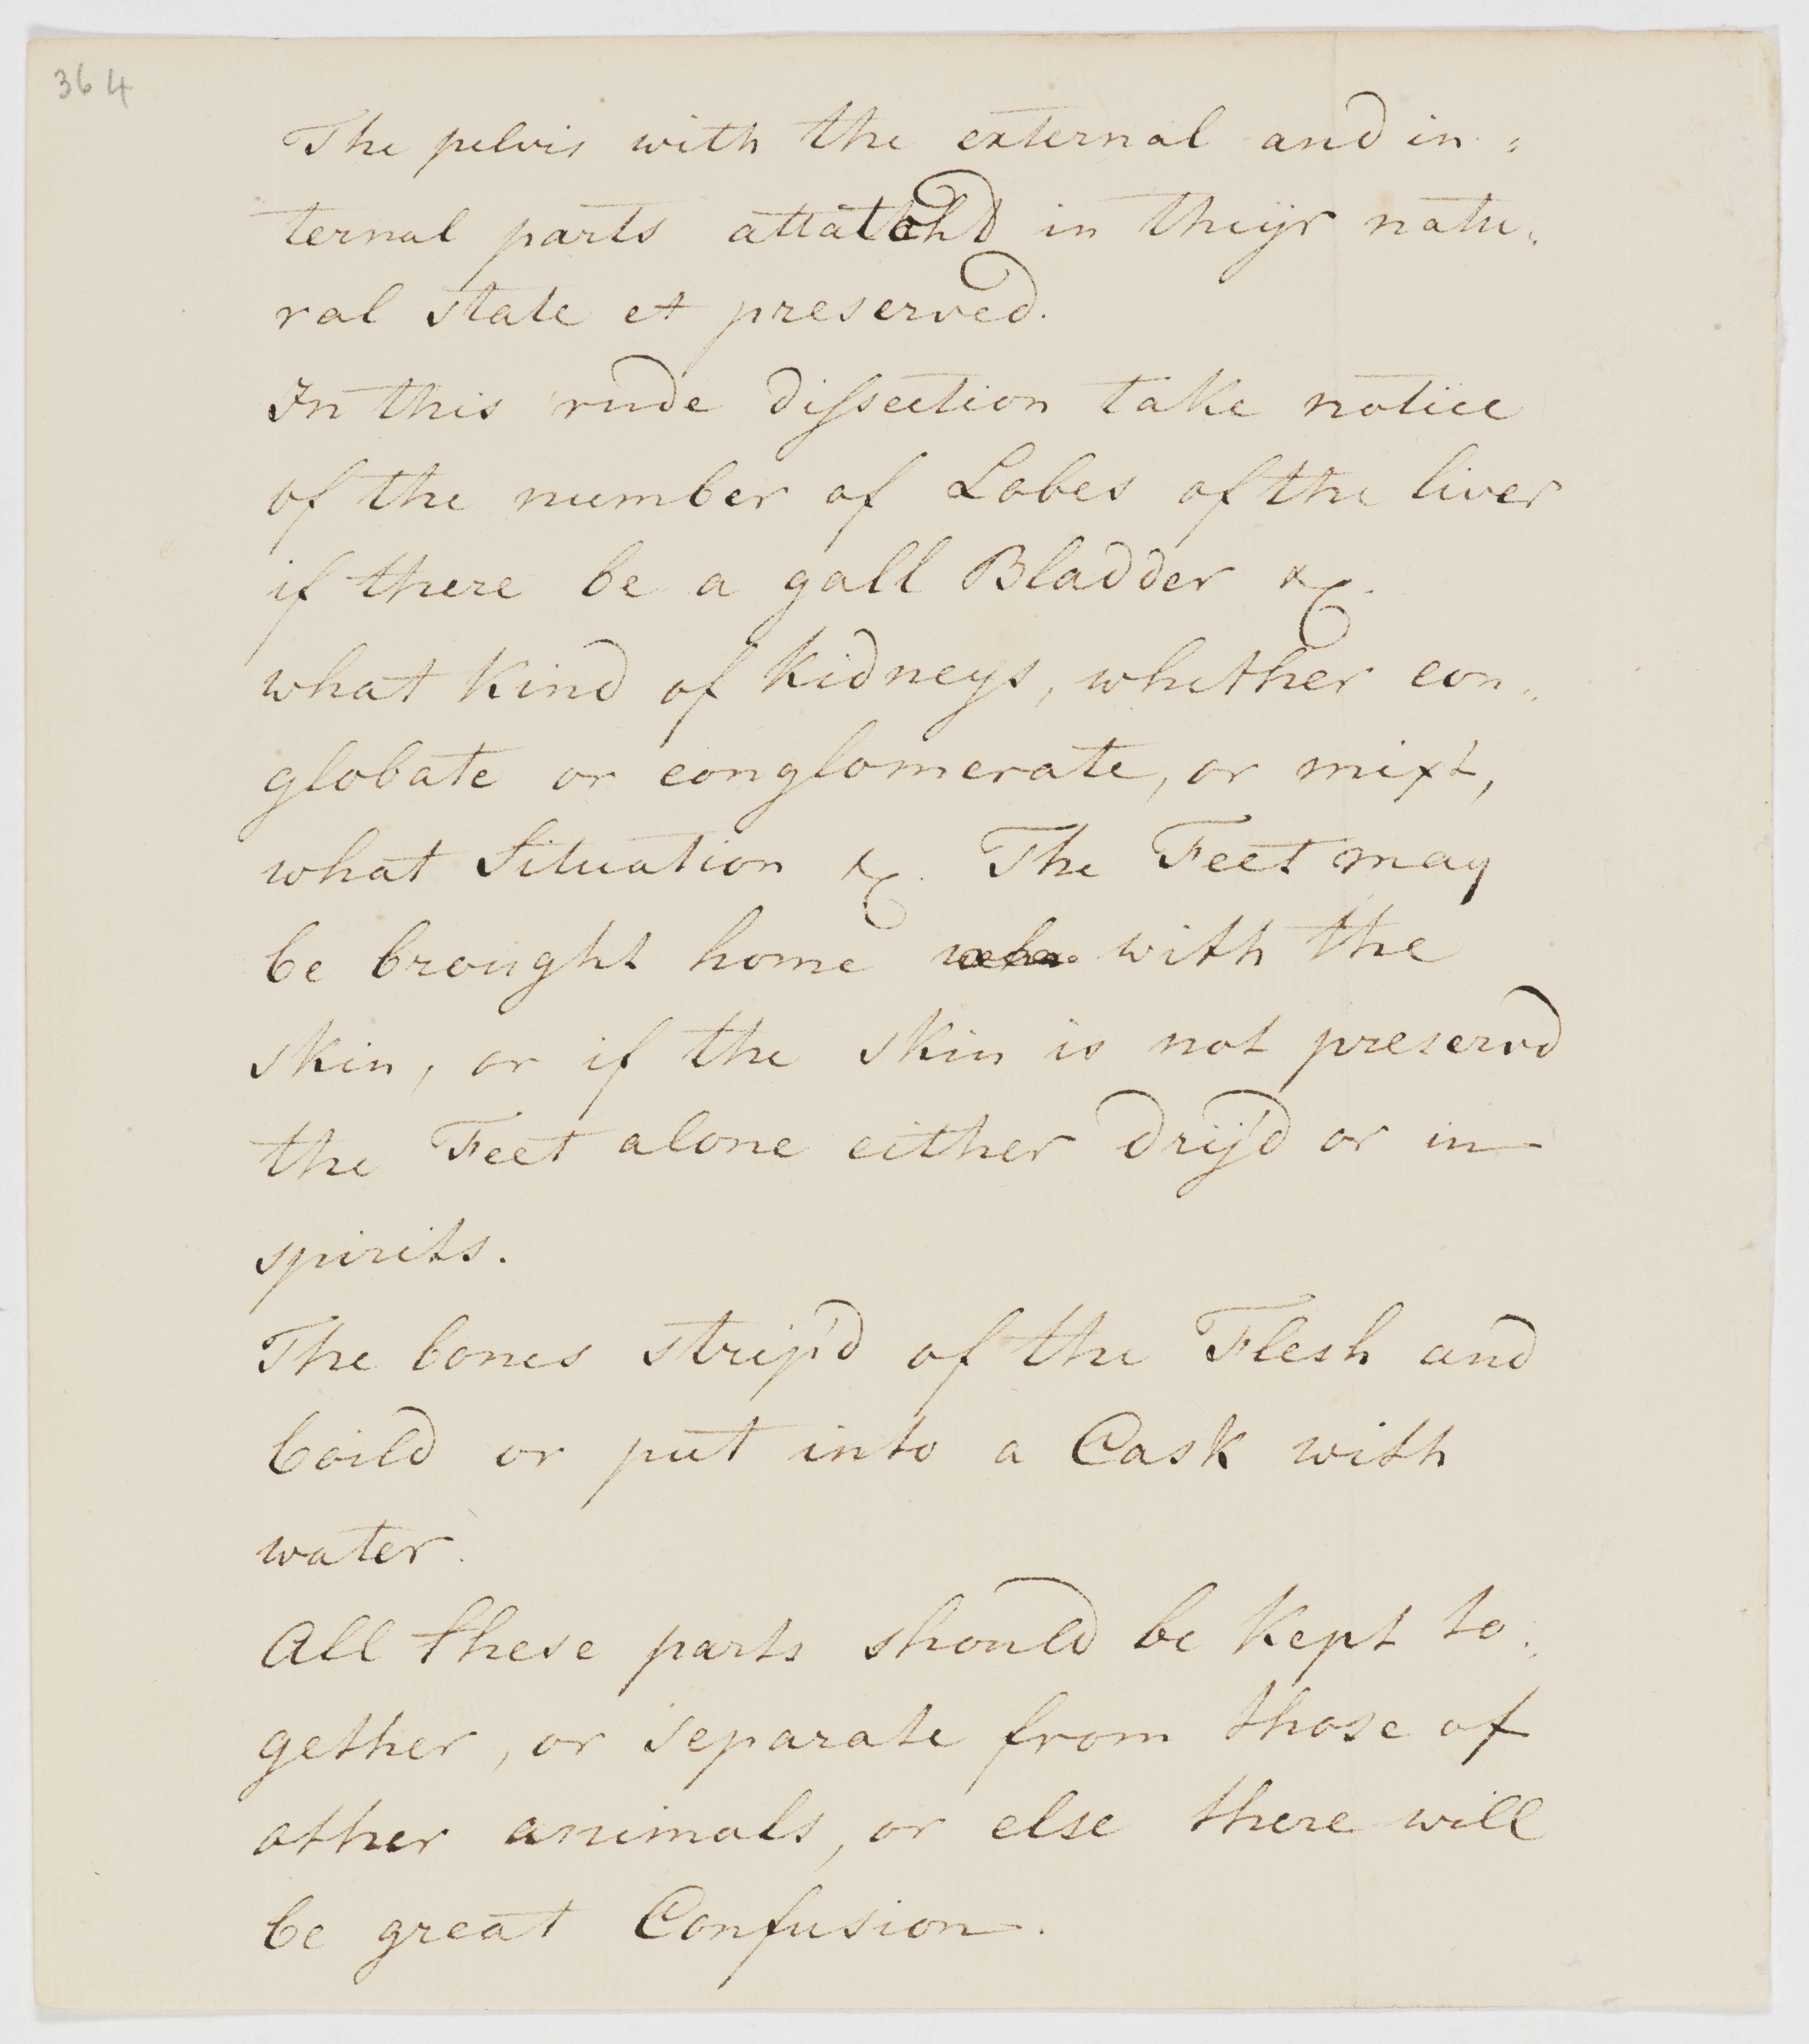 364
The pelvis with the external and in=
ternal parts attatchd in theijr natu=
ral state et preserved.
In this rude dissection take notice
of the number of Lobes of the liver
if there be a gall Bladder &c.
what Kind of Kidneys, whether con=
globate or conglomerate, or mixt,
what Situation &c. The Feet may
be brought home with the
skin, or if the skin is not preservd
the Feet alone either drij'd or in
spirits.
The bones strip'd of the Flesh and
boild or put into a Cask with
water.
All these parts should be Kept to=
gether, or separate from those of
other animals, or else there will
be great Confusion.